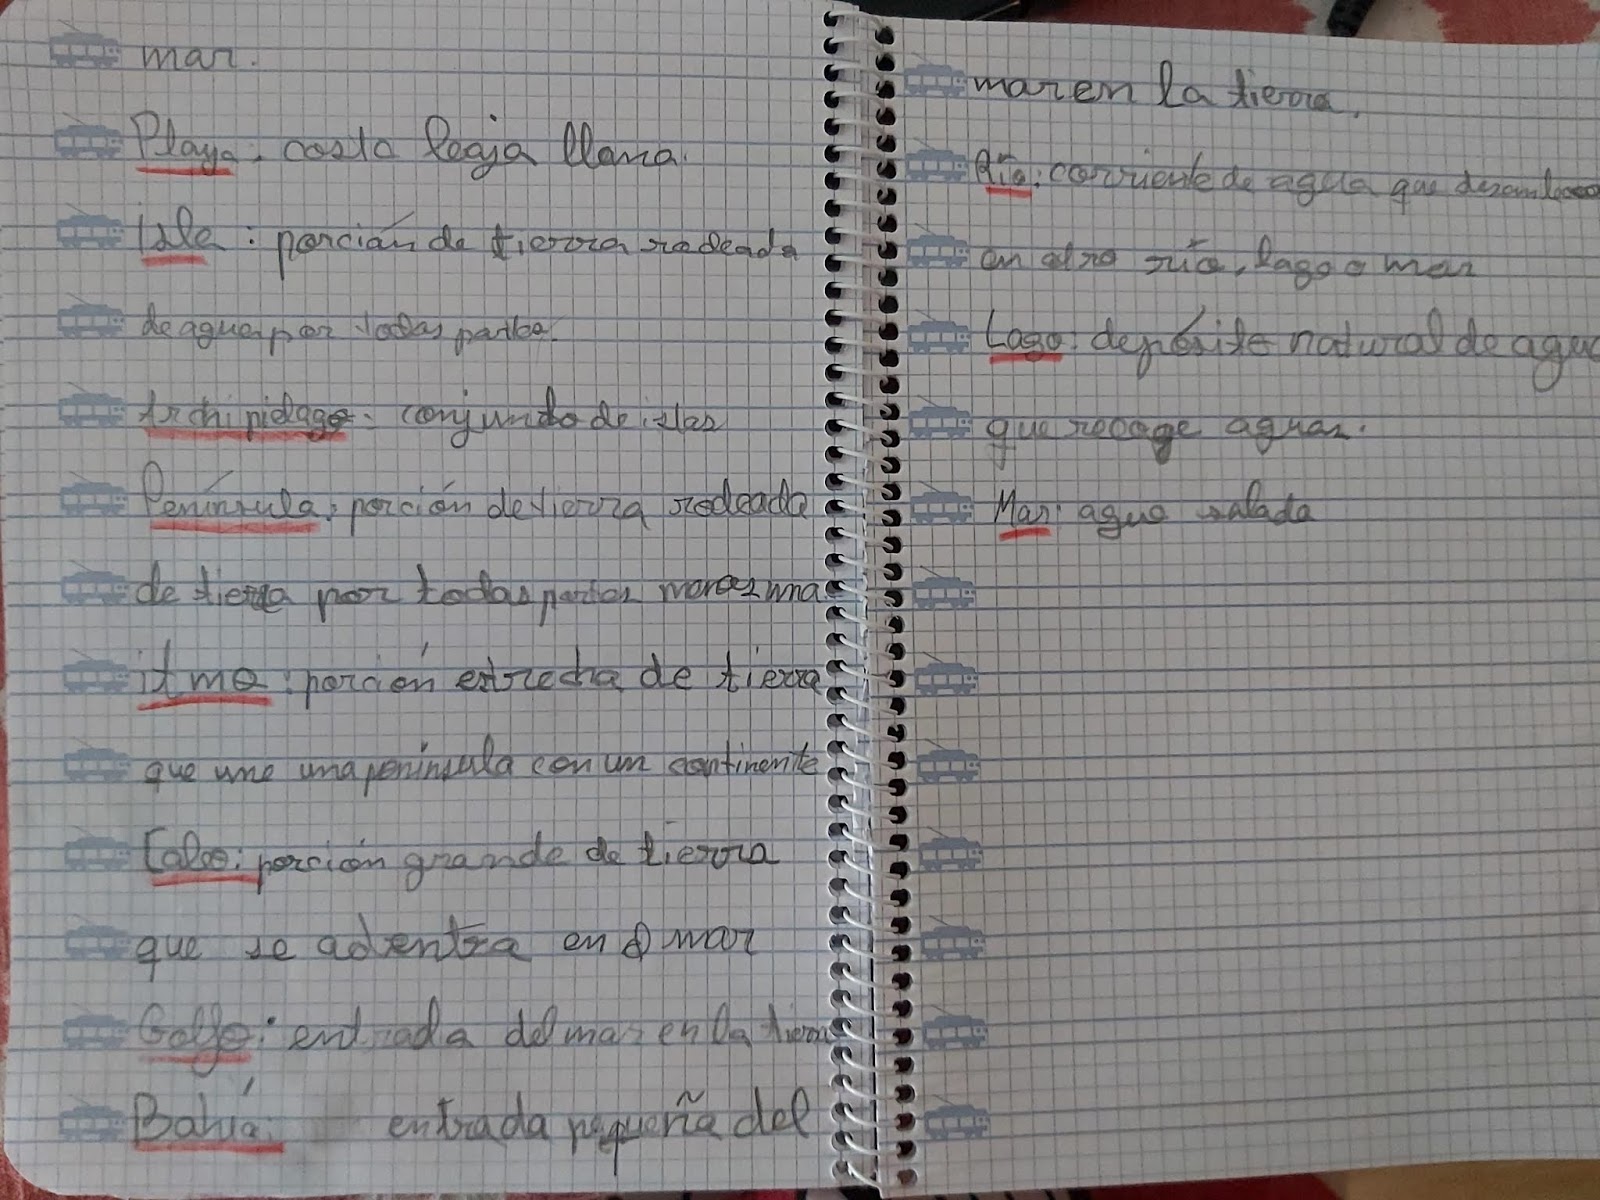 mar.
Playa: costa baja llana.
isla: porción de tierra rodeada
de agua por todas partes.
Archipielago: conjundo de islas
Península: porción de tierra rodeada
de tierra por todas partes menos una
itmo: porción estrecha de tierra
que une una península con un continente
Cabo: porción grande de tierra
que se adentra en el mar
Golfo: entrada del mar en la tierra
Bahía: entrada pequeña del
mar en la tierra.
Río: corriente de agua que desemboca
en otro río, lago o mar
Lago: depósito natural de agua
que recoge aguas.
Mar: agua salada